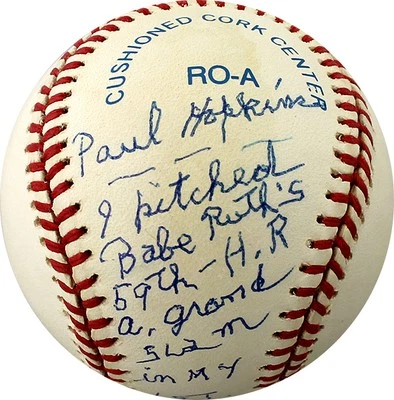 CUSHIONED CORK CENTER
RO-A
Paul Hopkins
I pitched
Babe Ruth's
59th - H.R
a. grand
slam
in my